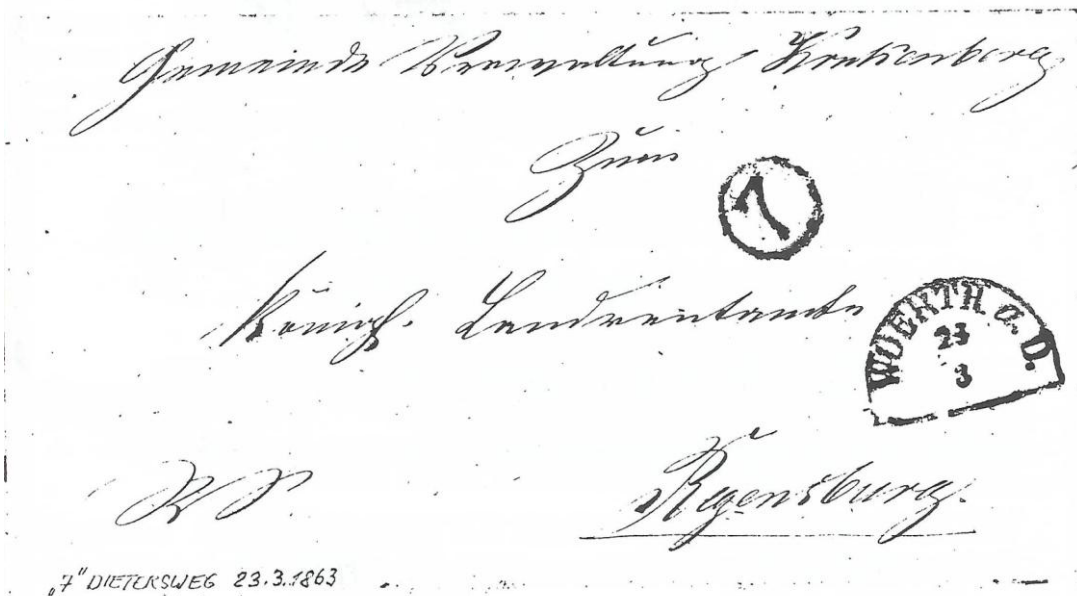 Gemeinde Verwaltung Kruckenberg
Zum
7
Königl. Landrentamte
WOERTH. a. D.
23
3
R S.
Regensburg.
„7" DIETERSWEG 23.3.1863